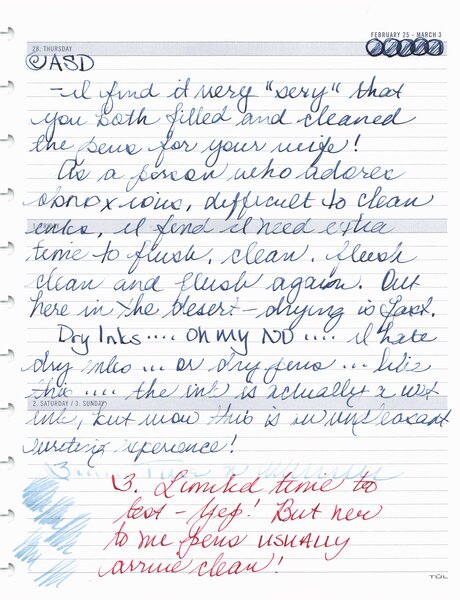 FEBRUARY 25 - MARCH 3
28. THURSDAY
@ASD
- I find it very "sexy" that
you both filled and cleaned
the pens for your wife!
As a person who adores
obnoxious, difficult to clean
inks, I find I need extra
time to flush, clean, flush
clean and flush again. Out
here in the desert - drying is fast.
Dry Inks.... Oh my NO.... I hate
dry inks... or dry pens... like
this.... the ink is actually a wet
ink, but wow this is an unpleasant
writing experience!
2. SATURDAY / 3. SUNDAY
3.
3. Limited time to
test - Yep! But new
to me pens USUALLY
arrive clean!
TUL